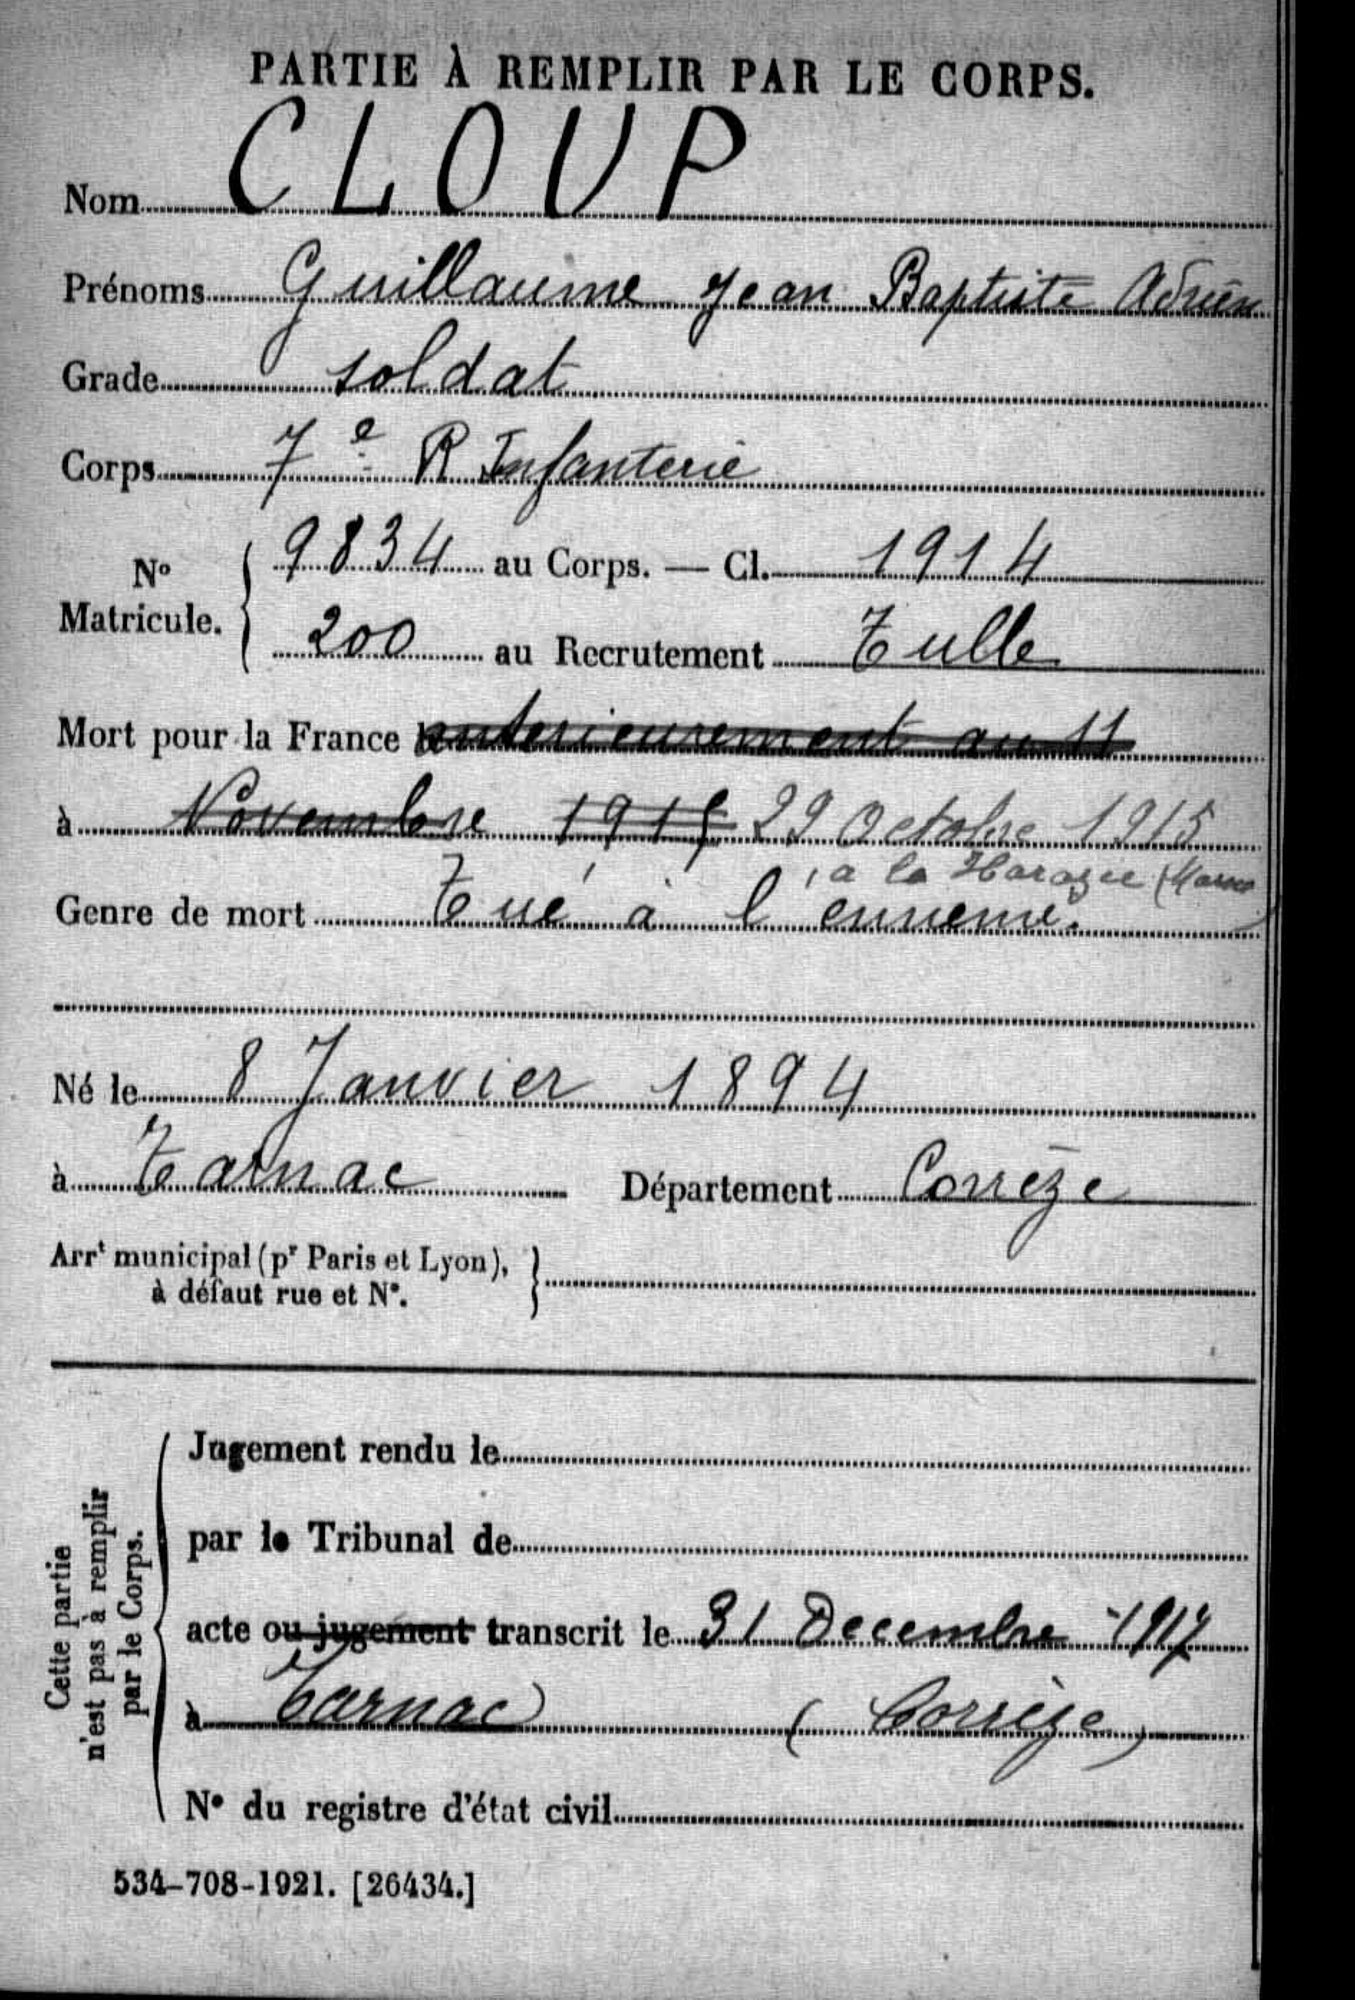 PARTIE À REMPLIR PAR LE CORPS.
Nom CLOUP
Prénoms Guillaume Jean Baptiste Adrien
Grade soldat
Corps 7e R Infanterie
No Matricule. 9834 au Corps. — Cl. 1914
200 au Recrutement Tulle
Mort pour la France le anterieurement au 11
à Novembre 1915 29 Octobre 1915
à la Harazée (Marne
Genre de mort Tué à l'ennemi.
Né le 8 Janvier 1894
à Tarnac Département Corrèze
Arrt municipal (pr Paris et Lyon),
à défaut rue et No.
Cette partie
n'est pas à remplir
par le Corps.
Jugement rendu le
par le Tribunal de
acte ou jugement transcrit le 31 Decembre 1917
à Tarnac (Corrèze)
No du registre d'état civil
534-708-1921. [26434.]